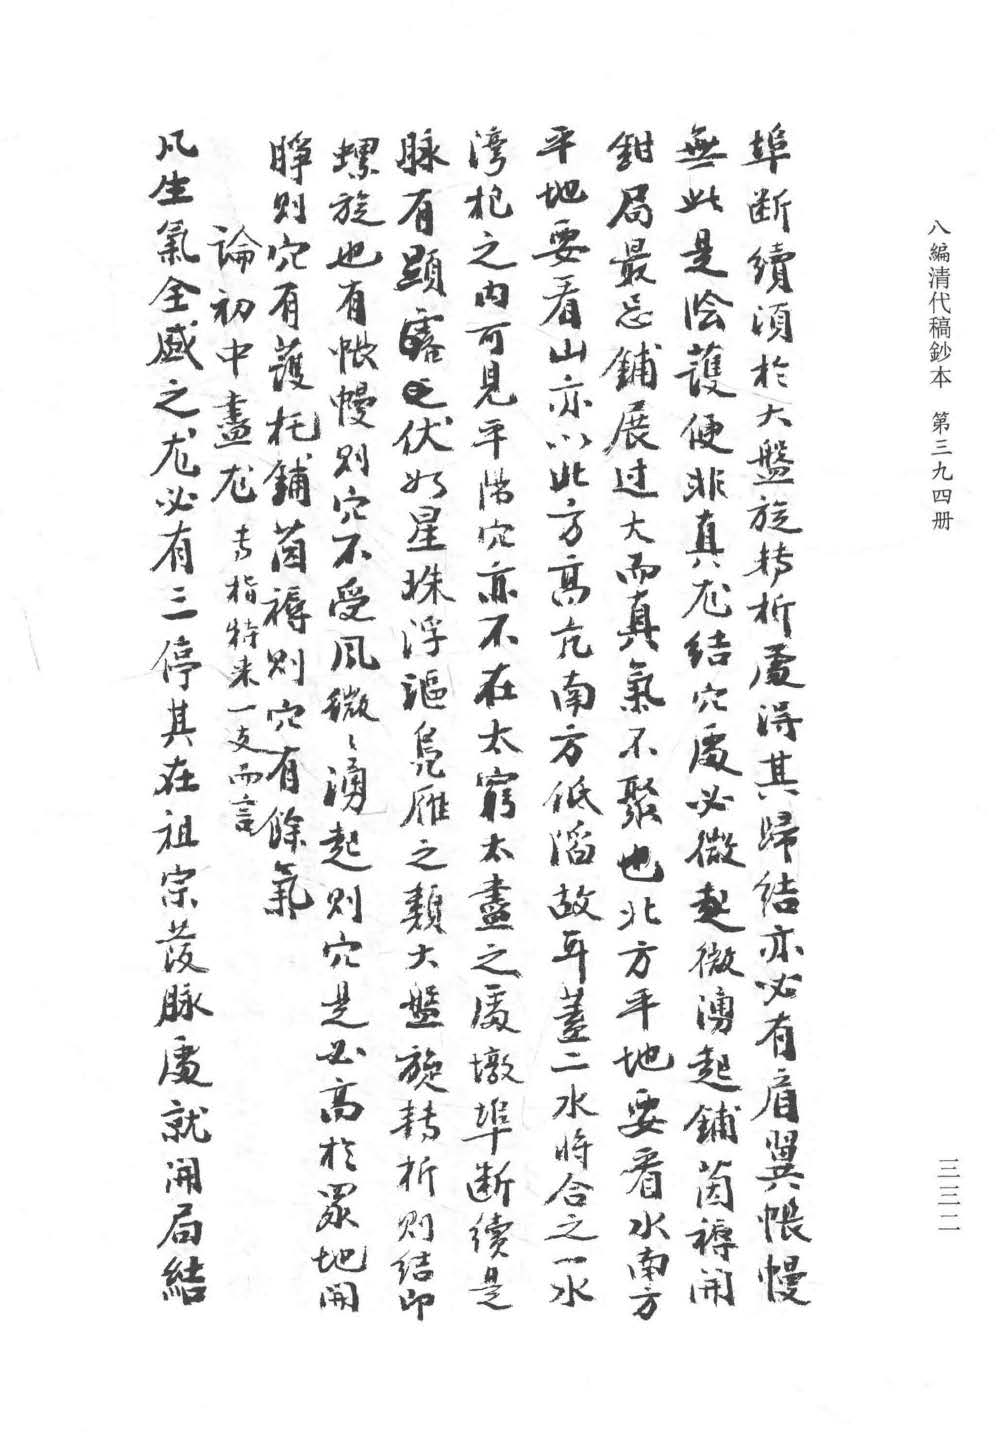 八編清代稿鈔本　第三九四册
三三二
埠断續須於大盤旋轉折處得其歸結亦必有肩翼帳幔
無此是陰護便非真尨結穴處必微起微湧起鋪茵褥開
鉗局最忌鋪展过大而真氣不聚也北方平地要看水南方
平地要看山亦以北方高亢南方低滔故耳蓋二水將合之一水
湾杞之内可見平陽穴亦不在太窮太盡之處墩埠断續是
脉有顕露之伏如星珠浮漚鳧雁之類大盤旋轉折則結印
螺旋也有帳幔則穴不受風微〻湧起則穴是必高於眾地開
睁則穴有護托鋪茵褥則穴有餘氣
論初中盡尨 专指特来一支而言
凡生氣全盛之尨必有三停其在祖宗發脉處就開局結